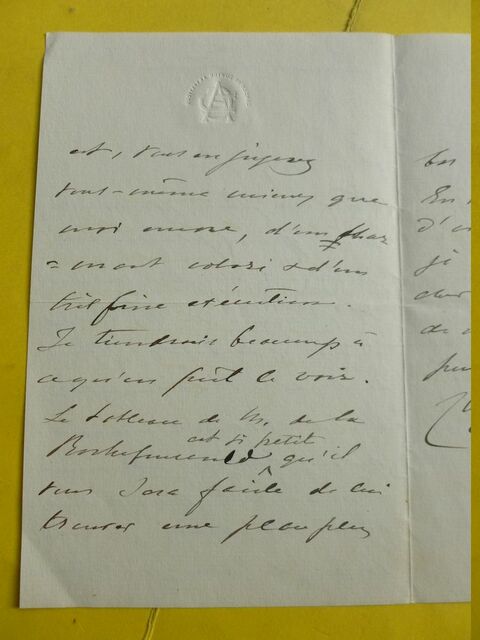 est, vous en jugerez
vous-même mieux que
moi encore, d'un char
= mant coloris & d'une
très fine exécution.
Je tiendrais beaucoup à
ce qu'on pût le voir.
Le tableau de M. de la
Rochefoucauld est si petit qu'il
vous sera facile de lui
trouver une place plus
En
d'un
je
de